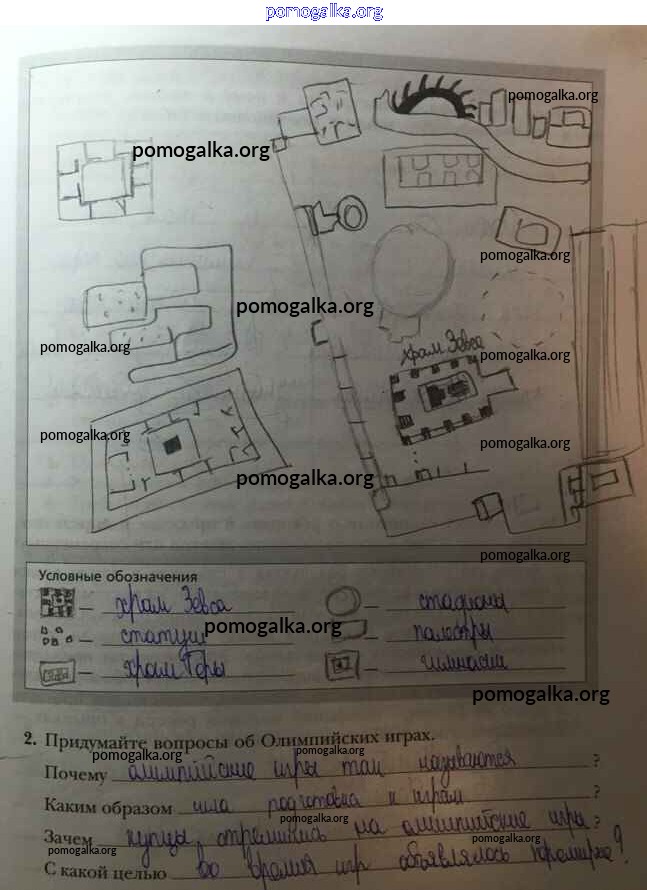 pomogalka.org
pomogalka.org
pomogalka.org
pomogalka.org
pomogalka.org
pomogalka.org
храм Зевса
pomogalka.org
pomogalka.org
pomogalka.org
pomogalka.org
pomogalka.org
Условные обозначения
– храм Зевса
– стадионы
– статуи
– палестры
pomogalka.org
– храм Геры
– гимнасии
pomogalka.org
2. Придумайте вопросы об Олимпийских играх.
pomogalka.org
Почему олимпийские игры так называются ?
Каким образом шла подготовка к играм ?
pomogalka.org
Зачем купцы стремились на олимпийские игры ?
pomogalka.org
pomogalka.org
С какой целью во время игр объявлялось перемирие ?
pomogalka.org